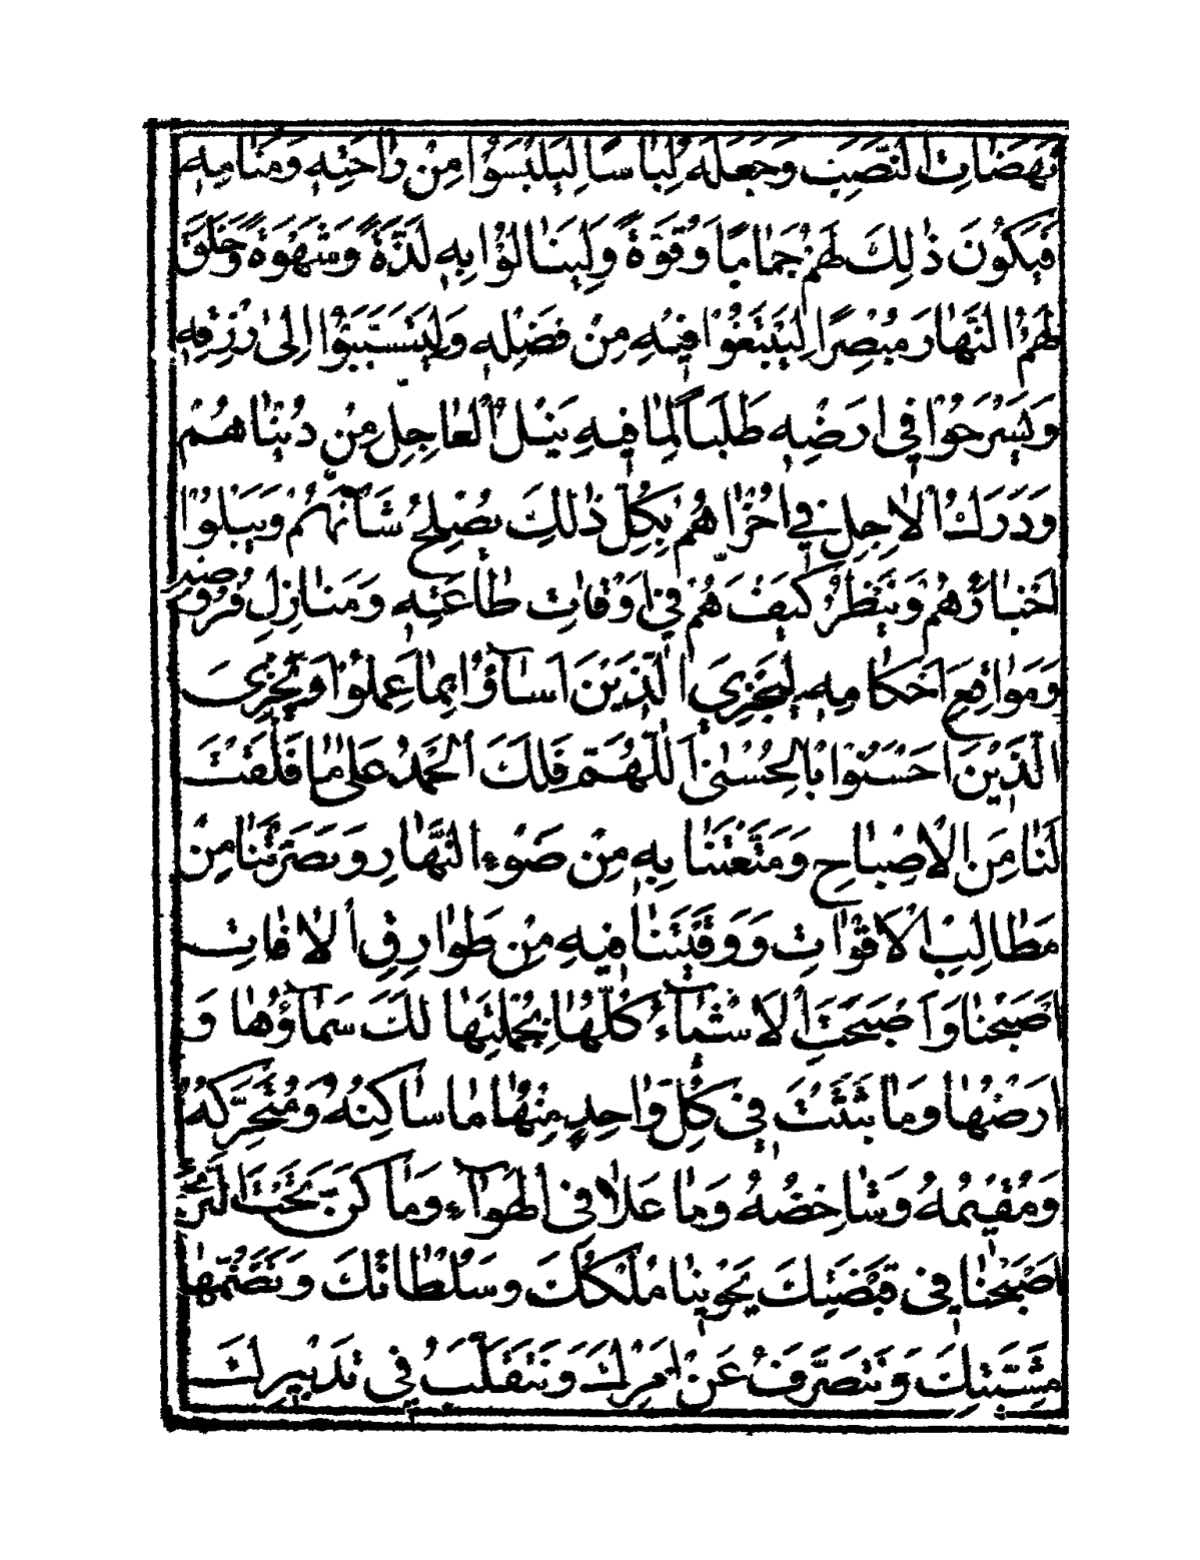 نَهَضَاتِ النَّصَبِ وَجَعَلَهُ لِبَاسًا لِيَلْبَسُوْا مِنْ رَاحَتِهِ وَمَنَامِهِ
فَيَكُوْنَ ذٰلِكَ لَهُمْ جَمَامًا وَقُوَّةً وَلِيَنَالُوْا بِهِ لَذَّةً وَشَهْوَةً وَخَلَقَ
لَهُمُ النَّهَارَ مُبْصِرًا لِيَبْتَغُوْا فِيْهِ مِنْ فَضْلِهِ وَلِيَتَسَبَّبُوْا اِلىٰ رِزْقِهِ
وَيَسْرَحُوْا فِي اَرْضِهِ طَلَبًا لِمَا فِيْهِ نَيْلُ الْعَاجِلِ مِنْ دُنْيَاهُمْ
وَدَرَكُ الْاٰجِلِ فِي اُخْرَاهُمْ بِكُلِّ ذٰلِكَ يُصْلِحُ شَاْنَهُمْ وَيَبْلُوْا
اَخْبَارَهُمْ وَيَنْظُرُ كَيْفَ هُمْ فِي اَوْقَاتِ طَاعَتِهِ وَمَنَازِلِ فُرُوْضِهِ
وَمَوَاقِعِ اَحْكَامِهِ لِيَجْزِيَ الَّذِيْنَ اَسَآؤُا بِمَا عَمِلُوْا وَيَجْزِىَ
الَّذِيْنَ اَحْسَنُوْا بِالْحُسْنىٰ اَللّٰهُمَّ فَلَكَ الْحَمْدُ عَلىٰ مَا فَلَقْتَ
لَنَا مِنَ الْاِصْبَاحِ وَمَتَّعْتَنَا بِهِ مِنْ ضَوْءِ النَّهَارِ وَبَصَّرْتَنَا مِنْ
مَطَالِبِ الْاَقْوَاتِ وَوَقَيْتَنَا فِيْهِ مِنْ طَوَارِقِ الْاٰفَاتِ
اَصْبَحْنَا وَاَصْبَحَتِ الْاَشْيَآءُ كُلُّهَا بِجُمْلَتِهَا لَكَ سَمَآؤُهَا وَ
اَرْضُهَا وَمَا بَثَثْتَ فِي كُلِّ وَاحِدٍ مِنْهُمَا سَاكِنُهُ وَمُتَحَرِّكُهُ
وَمُقِيْمُهُ وَشَاخِصُهُ وَمَا عَلَا فِي الْهَوَآءِ وَمَا كَنَّ تَحْتَ الثَّرىٰ
اَصْبَحْنَا فِي قَبْضَتِكَ يَحْوِيْنَا مُلْكُكَ وَسُلْطَانُكَ وَتَضُمُّنَا
مَشِيَّتُكَ وَنَتَصَرَّفُ عَنْ اَمْرِكَ وَنَتَقَلَّبُ فِي تَدْبِيْرِكَ